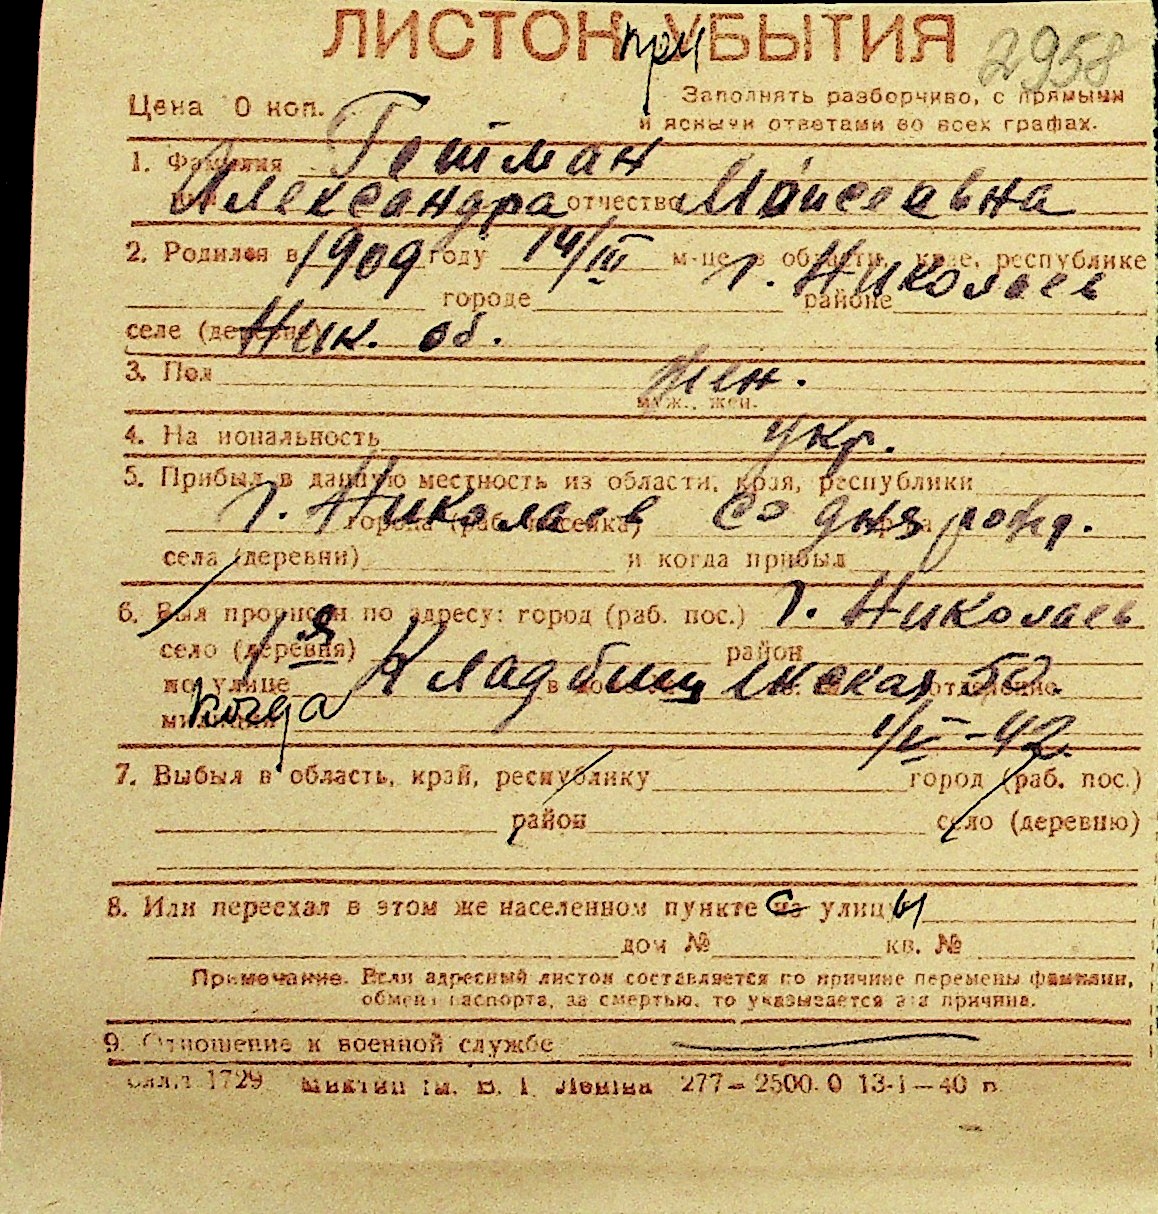 ЛИСТОК УБЫТИЯ
при
2958
Цена 0 коп.
Заполнять разборчиво, с прямыми
и ясными ответами во всех графах.
1. Фамилия Гетман
Александра отчество Моисеевна
2. Родился в 1909 году 14/III м-це в области, крае, республике
г. Николаев
городе районе
селе (деревне) Ник. об.
3. Пол жен.
муж., жен.
4. Национальность укр.
5. Прибыл в данную местность из области, края, республики
г. Николаев со дня рожд.
села (деревни) и когда прибыл
6. Был прописан по адресу: город (раб. пос.) г. Николаев
село (деревня) район
1я Кладбищенская 50
по улице
когда 1/IV-42
милиции
7. Выбыл в область, край, республику город (раб. пос.)
район село (деревню)
8. Или переехал в этом же населенном пункте с улицы
дом № кв. №
Примечание. Если адресный листок составляется по причине перемены фамилии,
обмена паспорта, за смертью, то указывается эта причина.
9. Отношение к военной службе
1729 Леніна 277–2500.0 13-І–40 п.